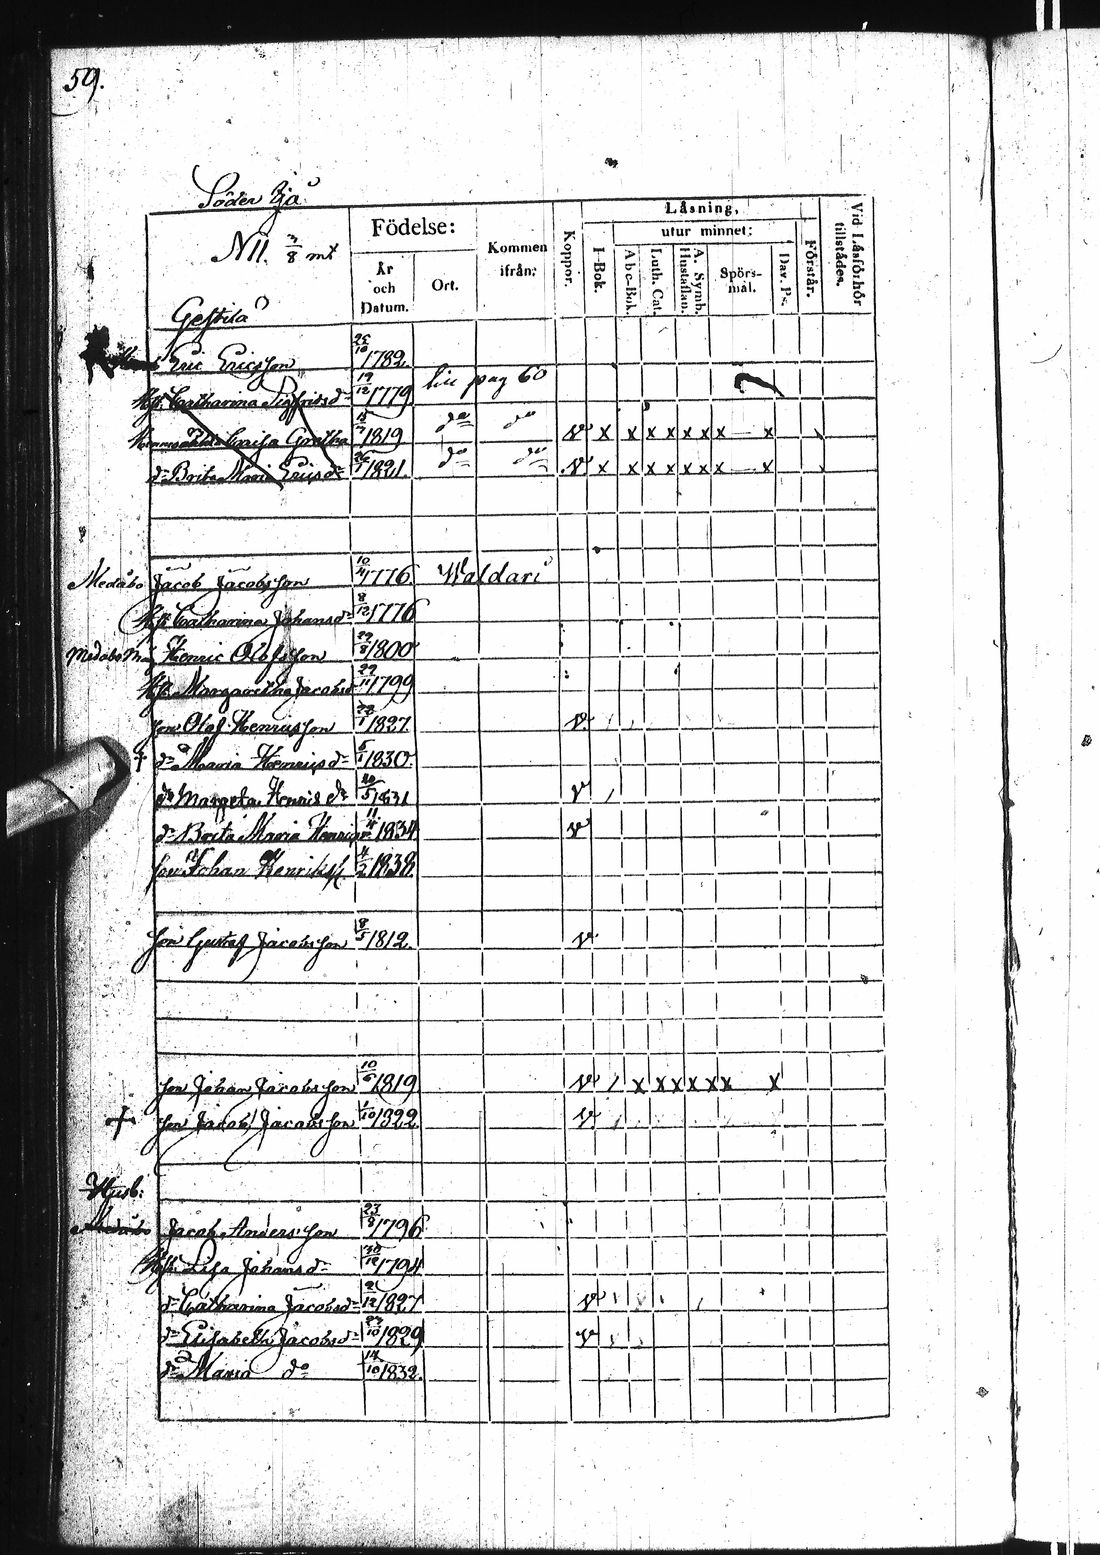 59.
Söder Yjå
N 11. 3/8 mt
Födelse:
Kommen ifrån:
Koppor.
Läsning,
I-Bok.
utur minnet:
Abc-Bok.
Luth. Cat.
A. Symb. Hustaflan.
Spörsmål.
Dav. Ps.
Förstår.
Vid Läsförhör tillstädes.
År och Datum.
Ort.
Gestilä
Eric Ericsson 25/10 1782.
Hu. Catharina Sigfridsd. 19/12 1779 hic pag 60
Caisa Gretha 1819 do do v x x x x x x x x
dr Brita Maria Ericsdr 1821. do do v x x x x x x x x
Medåbo Jacob Jacobsson 10/4 1776 Waldari
Hu Catharina Johansdr 8/12 1776
Medåbo Måg Henric Olofsson 29/8 1800
Hu Margaretha Jacobsd 29/11 1799
son Olof Henricsson 1827. v
+ dr Maria Henricsdr 1830
dr Margeta Henricsdr 1831 v
dr Brita Maria Henricsdr 11/11 1834 v
son Johan Henrikss. 4/2 1838
son Gustaf Jacobsson 8/5 1812. v
son Johan Jacobsson 10/6 1819 v x x x x x x x
+ son Jacob Jacobsson 1822 v
Husb:
Medåbo Jacob Andersson 23/8 1796
Hu Lisa Johansdr 30/12 1794
dr Catharina Jacobsdr 1827 v
dr Elisabeth Jacobsdr 1829 v
dr Maria do 14/10 1832.